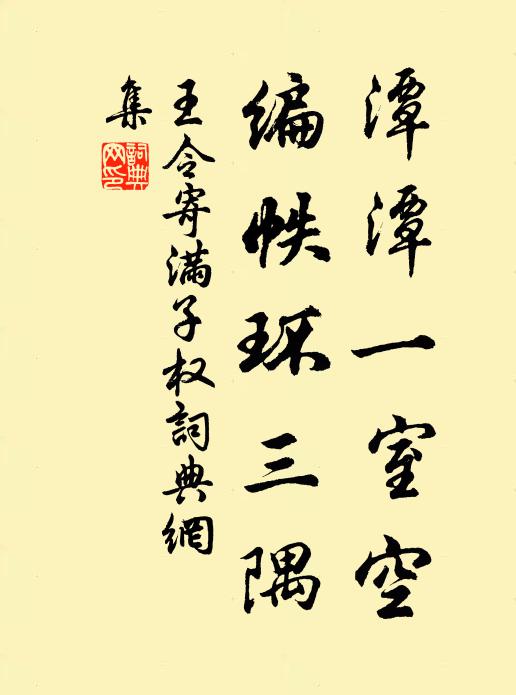 潭潭一室空
编帙环三隅
王令寄满子权詞典網
集
詞典
网印